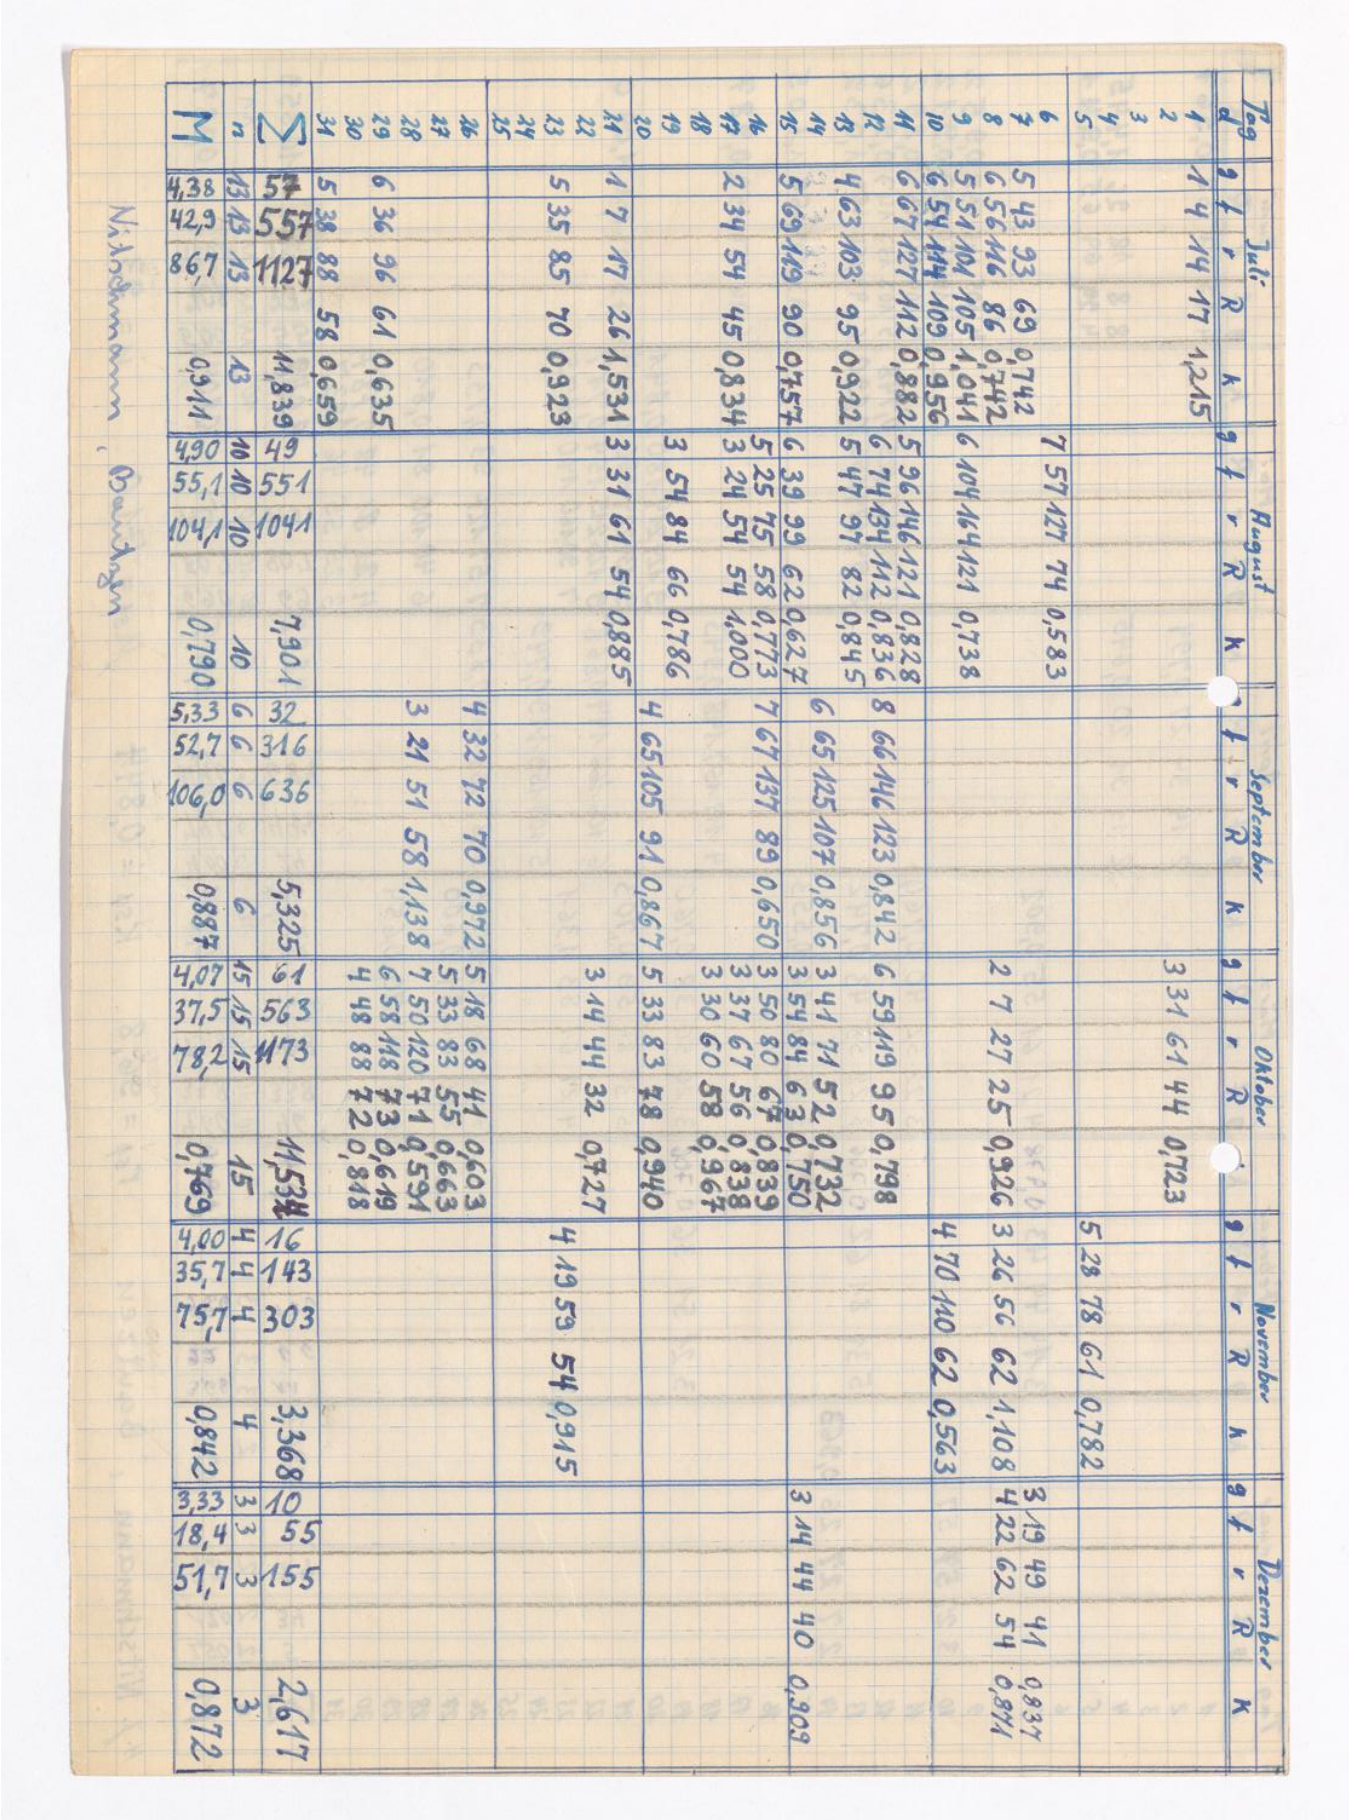 Tag Juli August September Oktober November Dezember
d g f r R k g f r R k f r R k g f r R g f r R k g f r R K
1 1 4 14 17 1,215
2 3 31 61 44 0,723
3
4
5 5 28 78 61 0,782
6 7 57 127 74 0,583
7 5 43 93 69 0,742 3 19 49 41 0,837
8 6 56 116 86 0,742 2 7 27 25 0,926 3 26 56 62 1,108 4 22 62 54 0,871
9 5 51 101 105 1,041 6 104 164 121 0,738
10 6 54 114 109 0,956 4 70 110 62 0,563
11 6 67 127 112 0,882 5 96 146 121 0,828
12 6 74 134 112 0,836 8 66 146 123 0,842 6 59 119 95 0,798
13 4 63 103 95 0,922 5 47 97 82 0,845
14 6 65 125 107 0,856 3 41 71 52 0,732
15 5 69 119 90 0,757 6 39 99 62 0,627 3 54 84 63 0,750 3 14 44 40 0,909
16 5 25 75 58 0,773 7 67 137 89 0,650 3 50 80 67 0,839
17 2 34 54 45 0,834 3 24 54 54 1,000 3 37 67 56 0,838
18 3 30 60 58 0,967
19 3 54 84 66 0,786
20 4 65 105 91 0,867 5 33 83 78 0,940
21 1 7 17 26 1,531 3 31 61 54 0,885
22 3 14 44 32 0,727
23 5 35 85 70 0,923 4 19 59 54 0,915
24
25
26 4 32 72 70 0,972 5 18 68 41 0,603
27 5 33 83 55 0,663
28 3 21 51 58 1,138 7 50 120 71 0,591
29 6 36 96 61 0,635 6 58 118 73 0,619
30 4 48 88 72 0,818
31 5 38 88 58 0,659
Σ 57 557 1127 11,839 49 551 1041 7,901 32 316 636 5,325 61 563 1173 11,534 16 143 303 3,368 10 55 155 2,617
n 13 13 13 13 10 10 10 10 6 6 6 6 15 15 15 15 4 4 4 4 3 3 3 3
M 4,38 42,9 86,7 0,911 4,90 55,1 104,1 0,790 5,33 52,7 106,0 0,887 4,07 37,5 78,2 0,769 4,00 35,7 75,7 0,842 3,33 18,4 51,7 0,872
Nitschmann, Bautzen